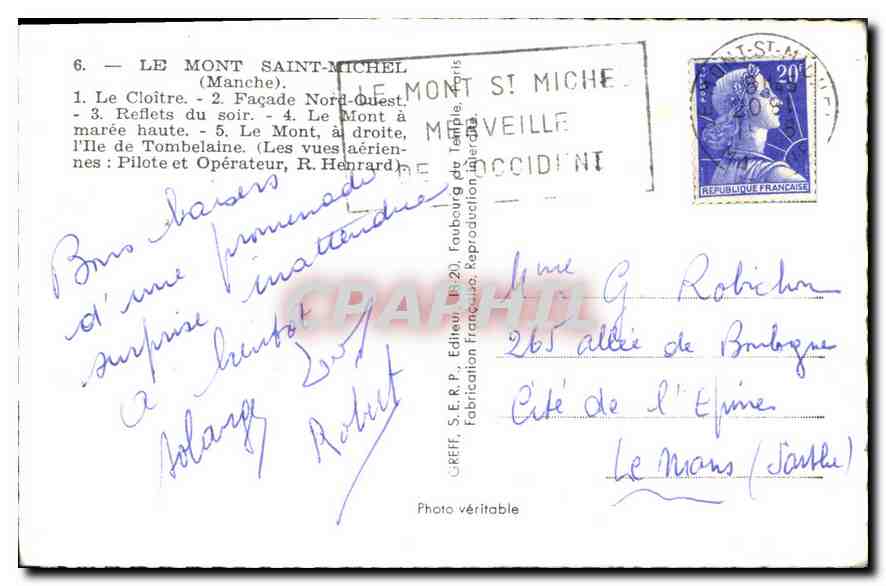 6. — LE MONT SAINT-MICHEL
(Manche).
1. Le Cloître. - 2. Façade Nord-Ouest.
- 3. Reflets du soir. - 4. Le Mont à
marée haute. - 5. Le Mont, à droite,
l'Ile de Tombelaine. (Les vues aérien-
nes : Pilote et Opérateur, R. Henrard)
LE MONT St MICHEL
MERVEILLE
DE L'OCCIDENT
MONT-ST-MICHEL
POSTES
20F
REPUBLIQUE FRANÇAISE
Bons baisers
d'une promenade
surprise inattendue
a bientot
Solange
Robert
GREFF, S.E.R.P., Editeur, 18-20, Faubourg du Temple, Paris
Fabrication Française, Reproduction interdite
Mme G Robichon
265 allée de Boulogne
Cité de l'Epine
Le Mans (Sarthe)
Photo véritable
CPAPHIL